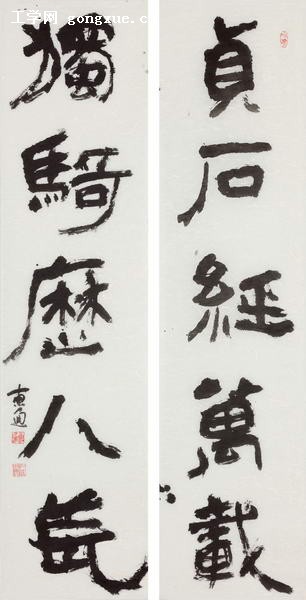 工学网 www.gongxue.cn
貞石經萬載
獨騎歷八荒